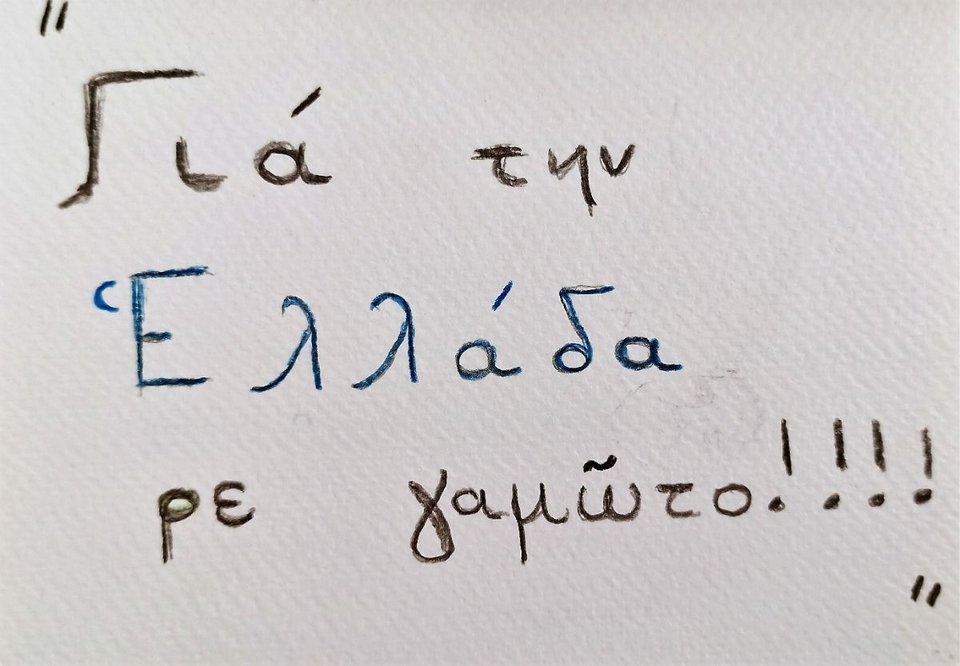 "
Γιά την
Ἑλλάδα
ρε γαμῶτο!!!!
"